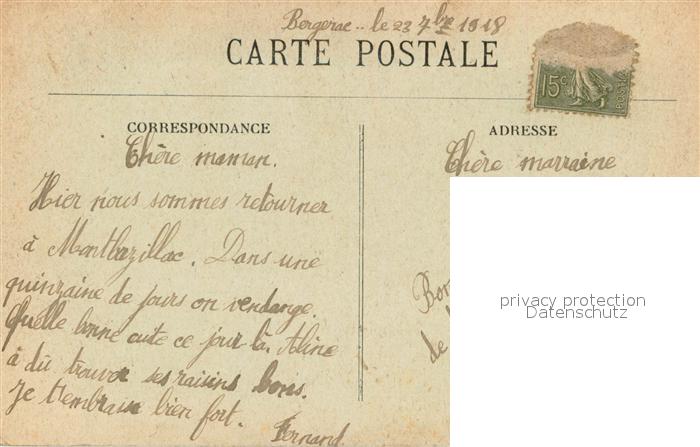 Bergerac.. le 23 7bre 1918
CARTE POSTALE
15c
POSTES
CORRESPONDANCE
ADRESSE
Chère maman.
Chère marraine
Hier nous sommes retourner
à Montbazillac. Dans une
quinzaine de jours on vendange.
Quelle bonne cuite ce jour là. Aline
à dû trouver ses raisins bons.
Je t'embrasse bien fort.
Fernand
Bon
de
privacy protection
Datenschutz